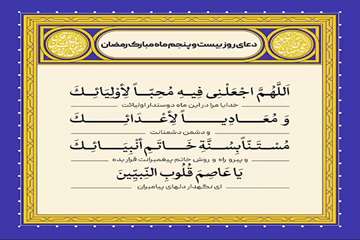 دعای روز بیست و پنجم ماه مبارک رمضان
اَللَّهُمَّ اجْعَلْنِی فِیهِ مُحِبّاً لِأَوْلِیَائِکَ
خدایا مرا در این ماه دوستدار اولیائت
وَ مُعَادِیاً لِأَعْدَائِکَ
و دشمن دشمنانت
مُسْتَنّاً بِسُنَّةِ خَاتَمِ أَنْبِیَائِکَ
و پیرو راه و روش خاتم پیغمبرانت قرار بده
یَا عَاصِمَ قُلُوبِ النَّبِیِّینَ
ای نگهدار دلهای پیامبران